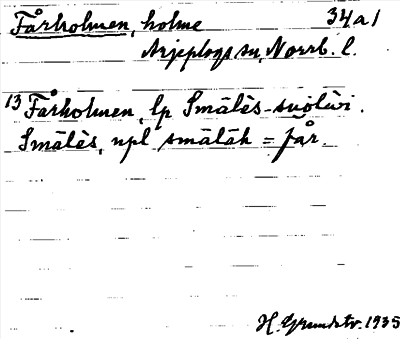 Fårholmen, holme 34a1
Arjeplogs sn, Norrb. l.
13 Fårholmen, lp Smālēs-suōlùi.
Smālēs, npl smālāh = får.
H. Grundstr. 1935